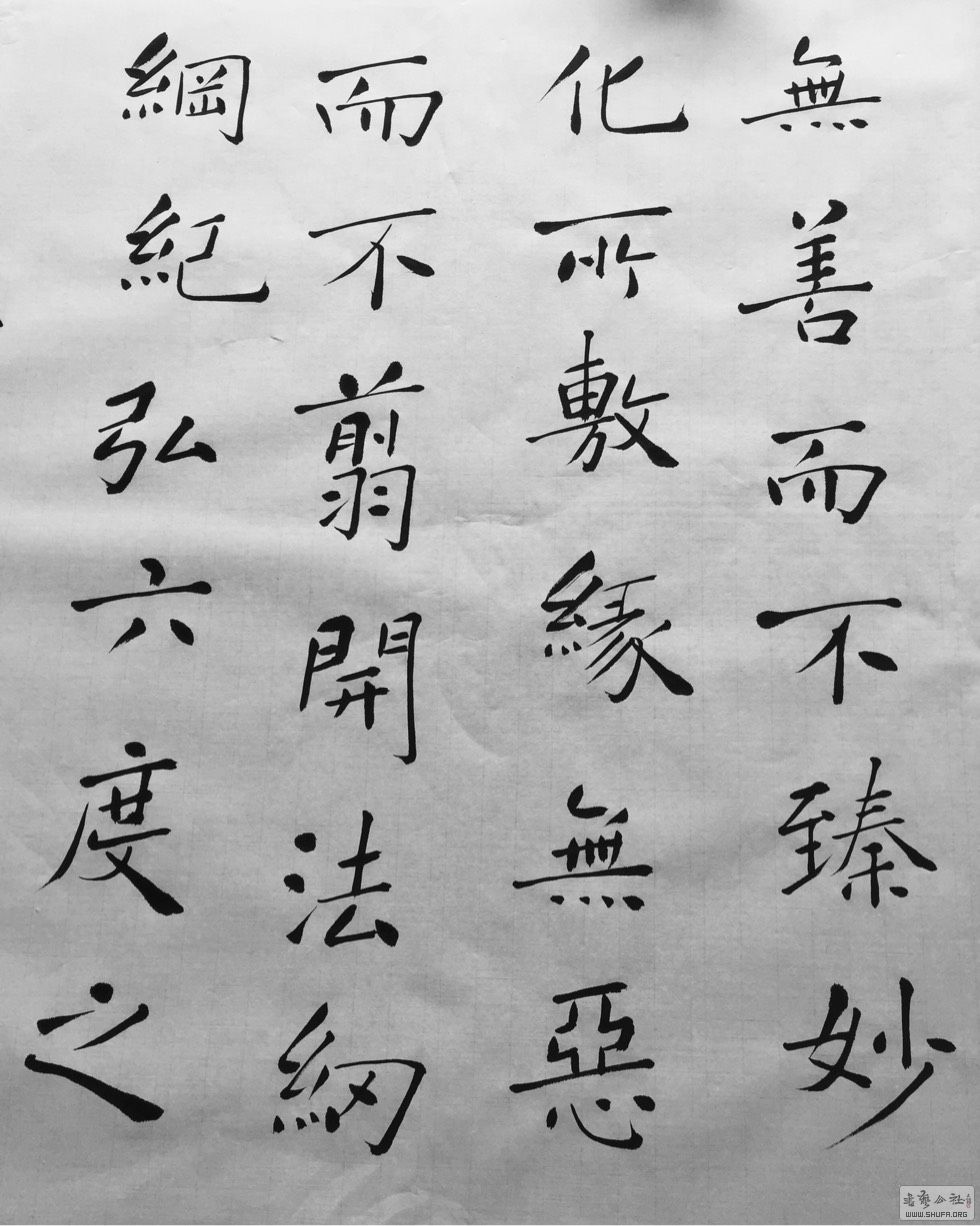 無善而不臻妙
化所敷緣無惡
而不翦開法網
綱紀弘六度之
書藝公社
WWW.SHUFA.ORG